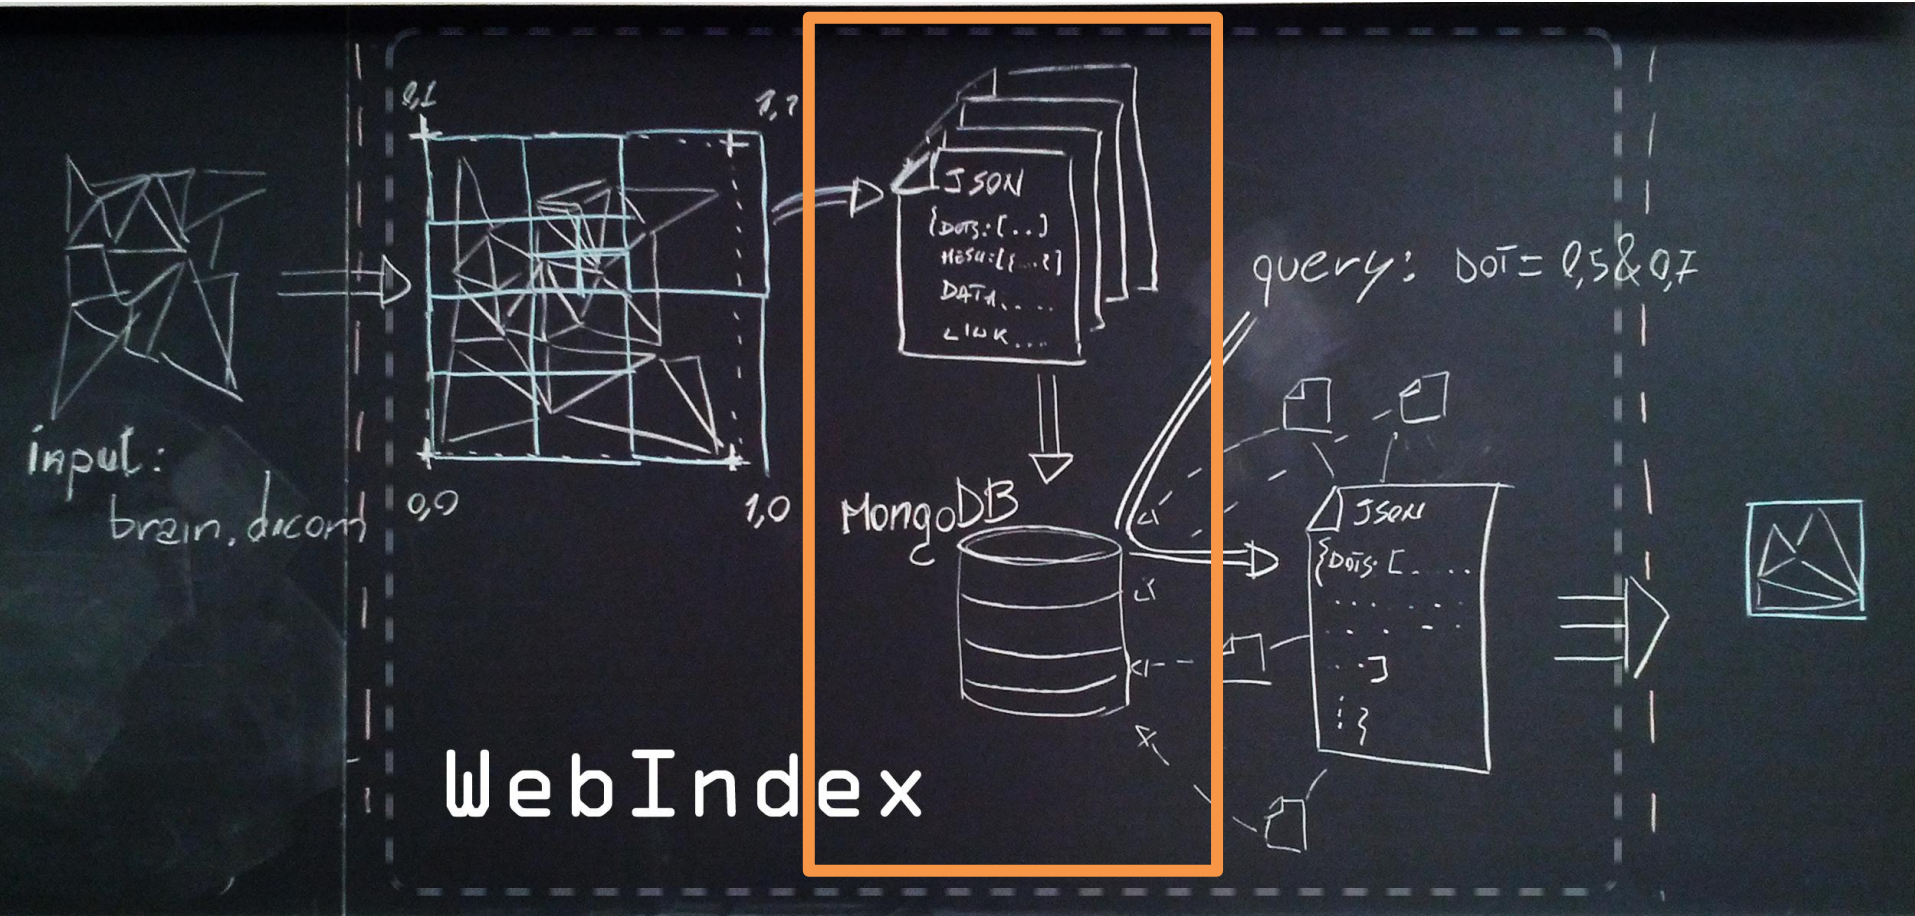 input:
brain.dicom
0,1
0,0
1,0
JSON
{DOTS:[..]
MESH:[{...}]
DATA....
LINK....
MongoDB
query: DOT = 0,5&0,7
JSON
{DOTS:[.....
.......
.....
..]
:}
WebIndex